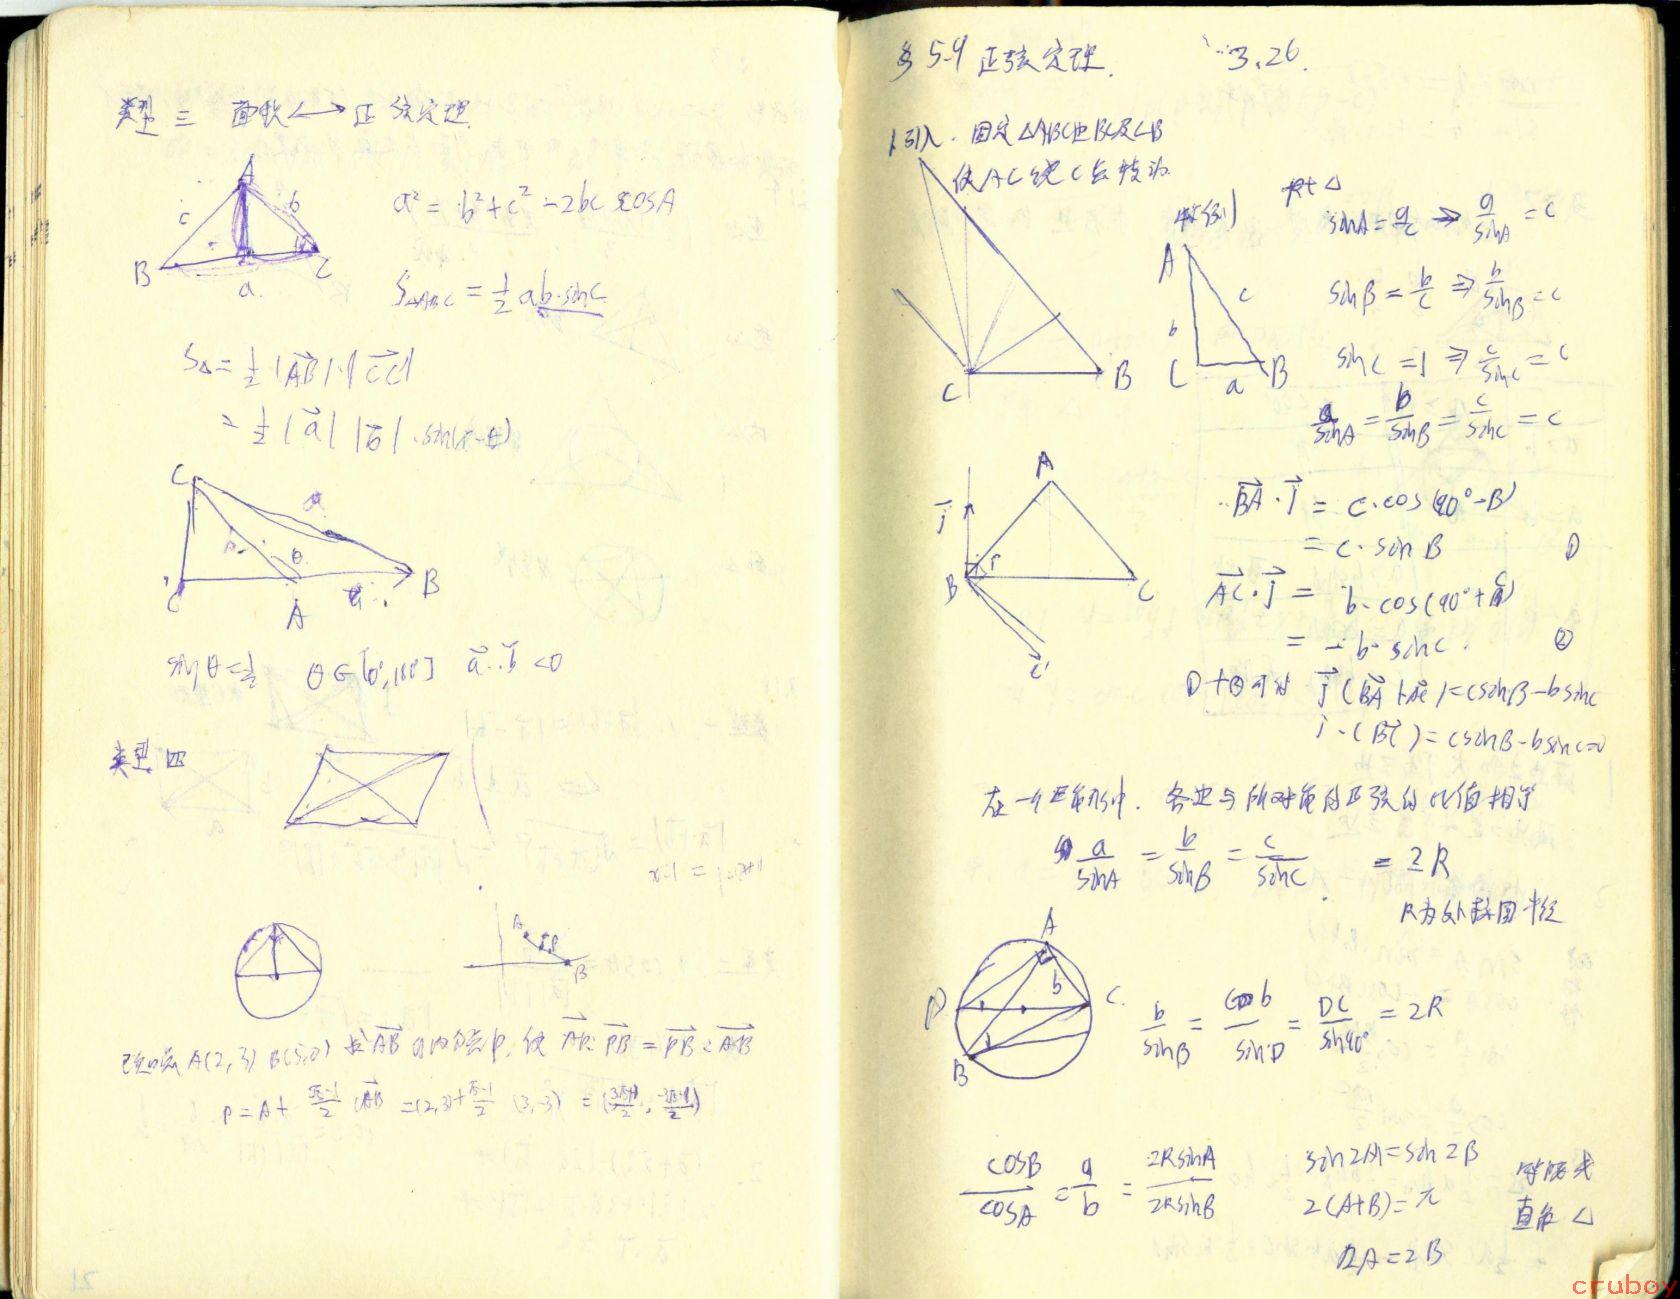 类型三 面积<—>正弦定理
A
c b
B C
a
a² = b²+c² -2bc cosA
S△ABC = 1/2 ab·sinC
S△ = 1/2 |AB|·|CC'|
= 1/2 |a| |b| ·sin(π-θ)
C
θ
C' A B
sinθ=1/2 θ∈[0°,180°] a·b <0
类型四
A P B
已知点A(2,3) B(5,0) 求AB的内分点P,使 AP:PB = PB:AB
P=A+ (√5-1)/2 AB =(2,3)+(√5-1)/2 (3,-3)
§5.9 正弦定理. 3.26.
1.引入. 固定△ABC边BC及∠B
使AC绕C点转动
C B
特例 Rt△
A
c
b
C a B
sinA=a/c ⇒ a/sinA = c
sinB=b/c ⇒ b/sinB = c
sinC=1 ⇒ c/sinC = c
a/sinA = b/sinB = c/sinC = c
A
j
B C
C'
BA·j = c·cos(90°-B)
= c·sinB ①
AC·j = b·cos(90°+C)
= -b·sinC. ②
①+②可对 j(BA+AC)=csinB-bsinC
j·(BC)=csinB-bsinC=0
在一个三角形中. 各边与所对角的正弦的比值相等
a/sinA = b/sinB = c/sinC = 2R
R为外接圆半径
A
b
D C
B
b/sinB = b/sinD = DC/sin90° = 2R
cosB/cosA = a/b = 2RsinA/2RsinB
sin2A=sin2B
2(A+B)=π
2A=2B
等腰或
直角△
21
cruboy